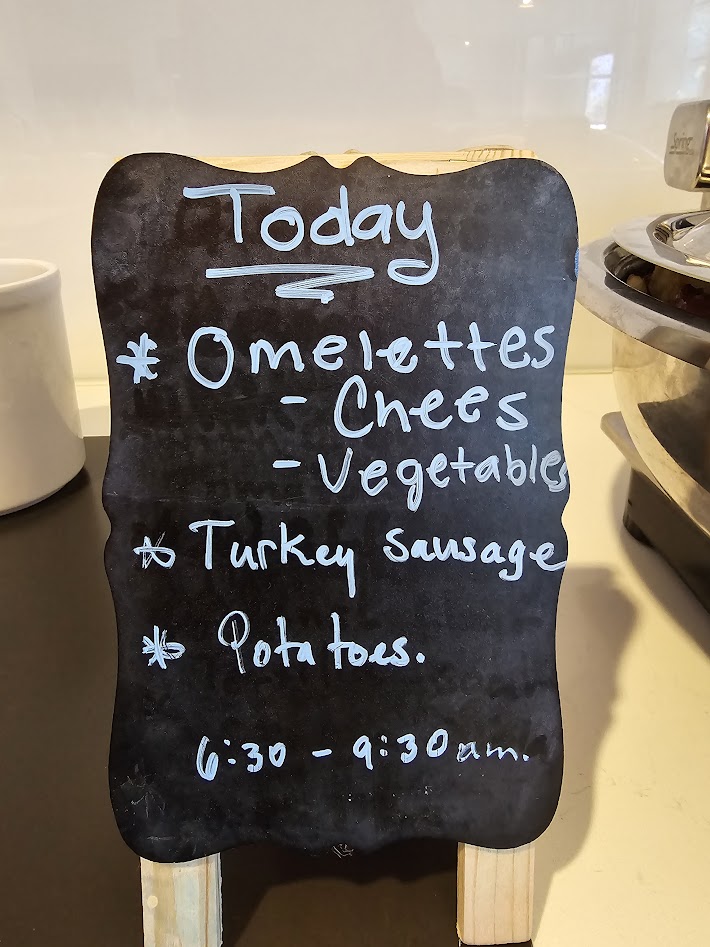 Today
* Omelettes
- Chees
- Vegetables
* Turkey Sausage
* Potatoes.
6:30 - 9:30 am.
Spring